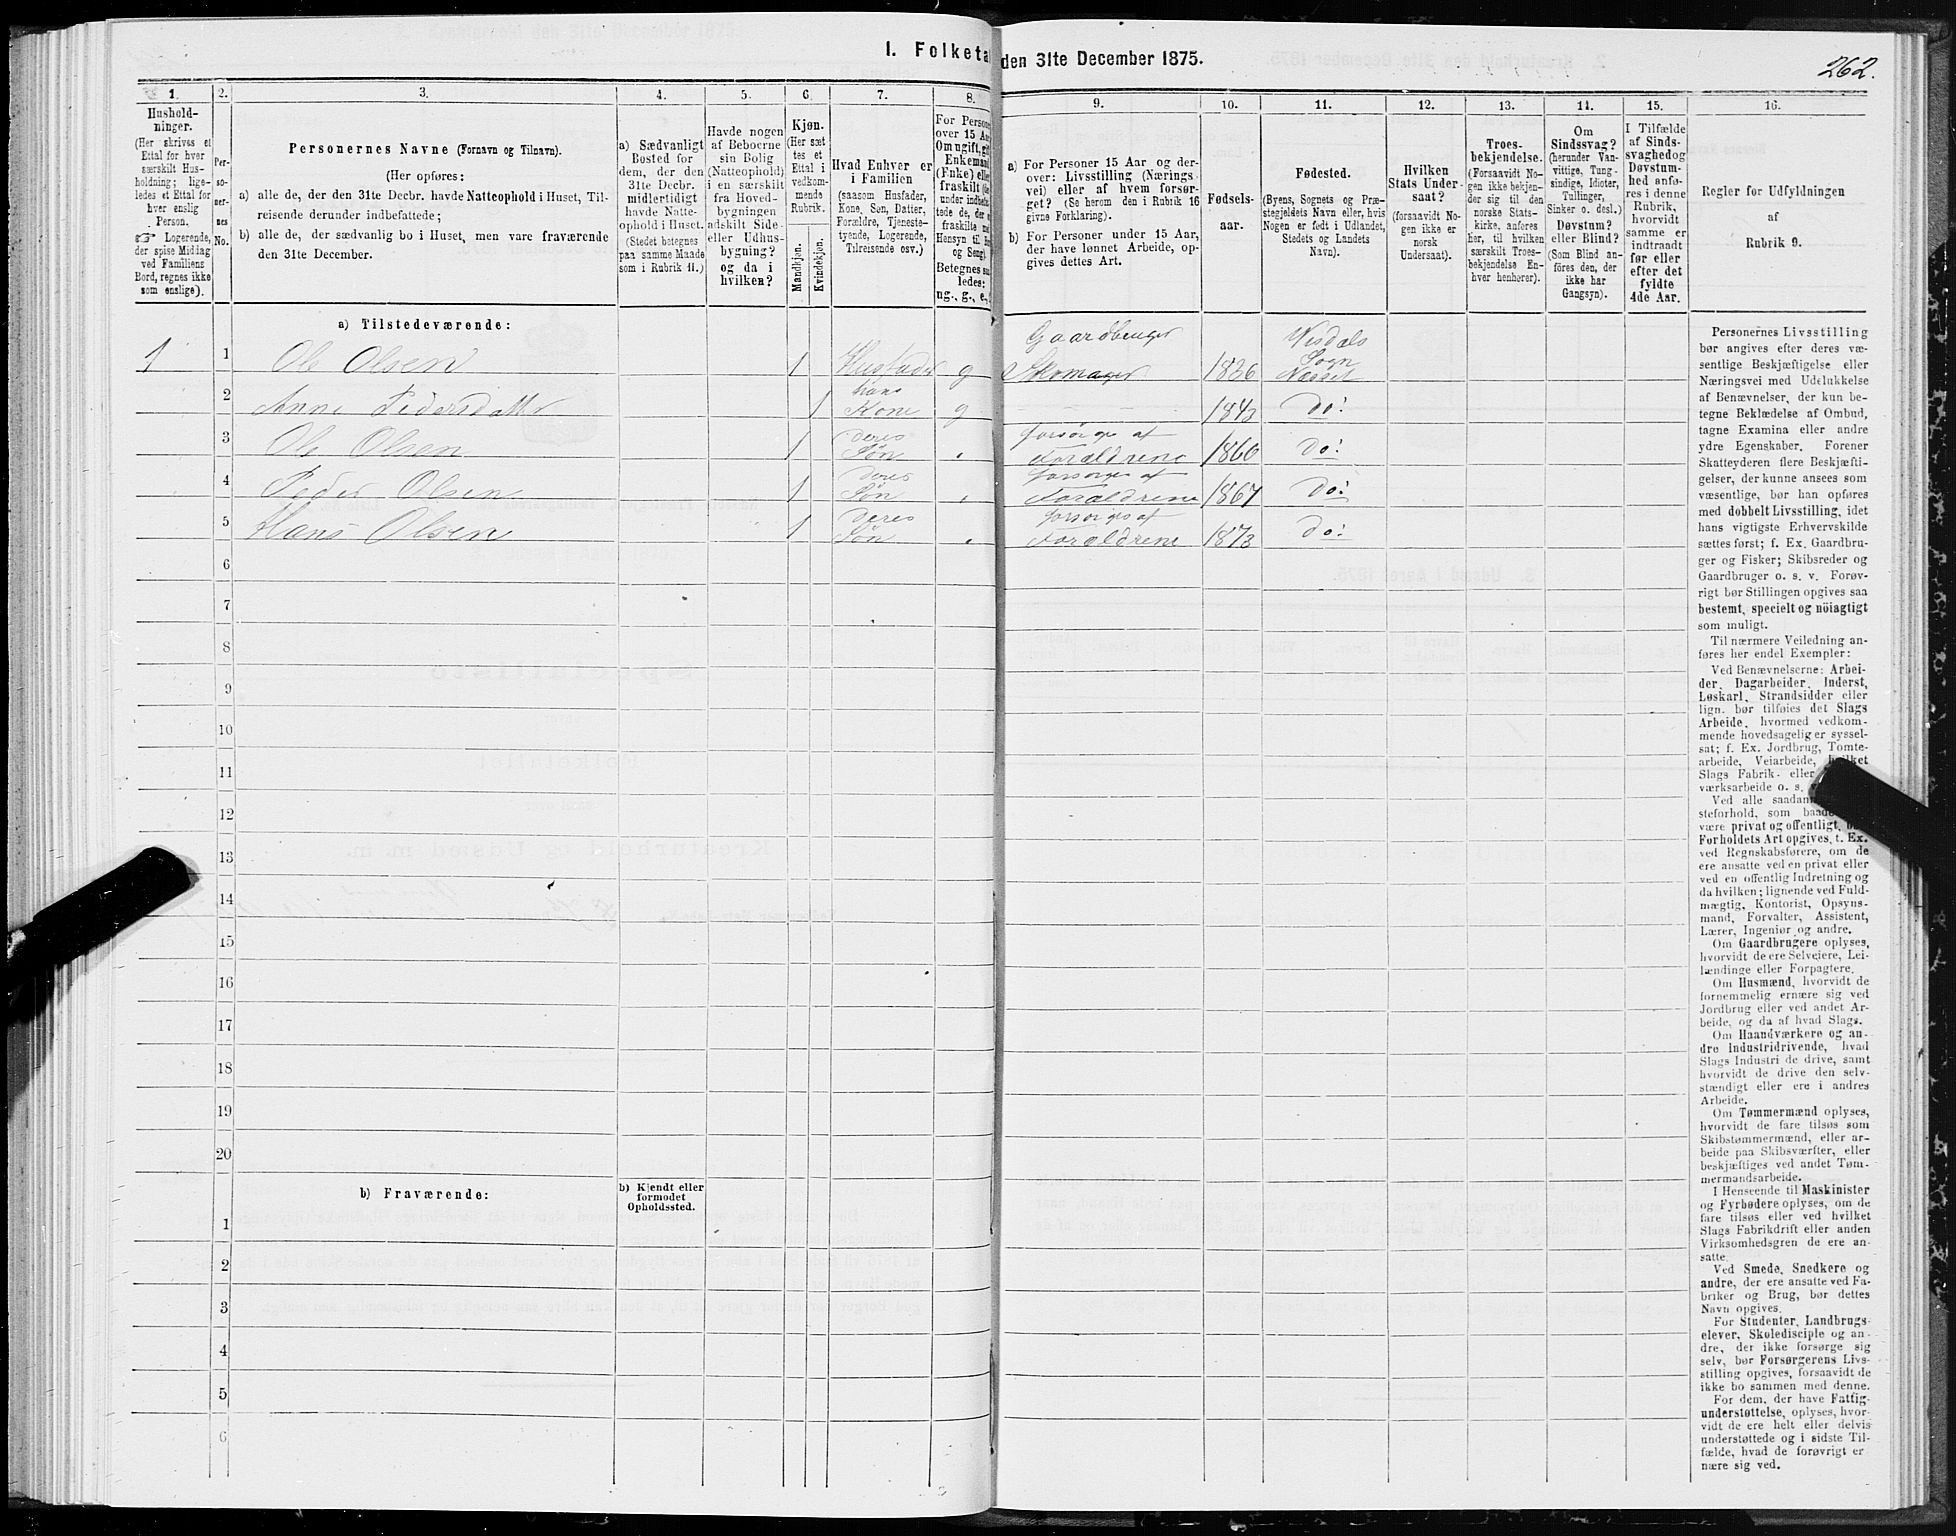 I. Folketal den 31te December 1875.
262.
1. 2. 3. 4. 5. 6. 7. 8. 9. 10. 11. 12. 13. 14. 15. 16.
Hushold-
ninger.
(Her skrives et
Ettal for hver
særskilt Hus-
holdning; lige-
ledes et Ettal for
hver enslig
Person.
☞ Logerende,
der spise Middag
ved Familiens
Bord, regnes ikke
som enslige).
Per-
so-
ner-
nes
No.
Personernes Navne (Fornavn og Tilnavn).
(Her opføres:
a) alle de, der den 31te Decbr. havde Natteophold i Huset, Til-
reisende derunder indbefattede;
b) alle de, der sædvanlig bo i Huset, men vare fraværende
den 31te December.
a) Sædvanligt
Bosted for
dem, der den
31te Decbr.
midlertidigt
havde Natte-
ophold i Huset.
(Stedet betegnes
paa samme Maade
som i Rubrik 11.)
Havde nogen
af Beboerne
sin Bolig
(Natteophold)
i en særskilt
fra Hoved-
bygningen
adskilt Side-
eller Udhus-
bygning?
og da i
hvilken?
Kjøn.
(Her sæt
tes et
Ettal i
vedkom-
mende
Rubrik.
Mandkjøn.
Kvindekjøn.
Hvad Enhver er
i Familien
(saasom Husfader,
Kone, Søn, Datter,
Forældre, Tjeneste-
tyende, Logerende,
Tilreisende osv.)
For Persone
over 15 Aar
Om ugift, gif
Enkemand
(Enke) elle
fraskilt
Betegnes
ledes:
ug., g., e.,
a) For Personer 15 Aar og der-
over: Livsstilling (Nærings
vei) eller af hvem forsør-
get? (Se herom den i Rubrik 16
givne Forklaring).
b) For Personer under 15 Aar,
der have lønnet Arbeide, op-
gives dettes Art.
Fødsels-
aar.
Fødested.
(Byens, Sognets og Præ-
stegjeldets Navn eller, hvis
Nogen er født i Udlandet,
Stedets og Landets
Navn).
Hvilken
Stats Under-
saat?
(forsaavidt No-
gen ikke er
norsk
Undersaat).
Troes-
bekjendelse.
(Forsaavidt No-
gen ikke bekjen-
der sig til den
norske Stats-
kirke, anføres
her, til hvilken
særskilt Troes-
bekjendelse En-
hver henhører).
Om
Sindssvag?
(herunder Van-
vittige, Tung-
sindige, Idioter,
Tullinger,
Sinker o. desl.)
Døvstum?
eller Blind?
(Som Blind an-
føres den, der
ikke har
Gangsyn).
I Tilfælde
af Sinds-
svaghed og
Døvstum-
hed anfø-
res i denne
Rubrik,
hvorvidt
samme er
indtraadt
før eller
efter det
fyldte
4de Aar.
Regler for Udfyldningen
af
Rubrik 9.
a) Tilstedeværende:
1 1 Ole Olsen 1 Husfader g Gaardbruger Skomager 1836 Nesdals Sogn Næsset
2 Anne Pedersdatter 1 hans Kone g 1843 Do:
3 Ole Olsen 1 deres Søn forsørges af Forældrene 1860 Do:
4 Peder Olsen 1 deres Søn forsørges af Forældrene 1867 Do:
5 Hans Olsen 1 deres Søn forsørges af Forældrene 1873 Do:
6
7
8
9
10
11
12
13
14
15
16
17
18
19
20
b) Fraværende:
b) Kjendt eller
formodet
Opholdssted.
1
2
3
4
5
6
Personernes Livsstilling
bør angives efter deres væ-
sentlige Beskjæftigelse eller
Næringsvei med Udelukkelse
af Benævnelser, der kun be-
tegne Beklædelse af Ombud,
tagne Examina eller andre
ydre Egenskaber. Forener
Skatteyderen flere Beskjæfti-
gelser, der kunne ansees som
væsentlige, bør han opføres
med dobbelt Livsstilling, idet
hans vigtigste Erhvervskilde
sættes først; f. Ex. Gaardbru-
ger og Fisker; Skibsreder og
Gaardbruger o. s. v. Forøv-
rigt bør Stillingen opgives saa
bestemt, specielt og nøiagtigt
som muligt.
Til nærmere Veiledning an-
føres her endel Exempler:
Ved Benævnelserne: Arbei-
der, Dagarbeider, Inderst,
Løskarl, Strandsidder eller
lign. bør tilføies det Slags
Arbeide, hvormed vedkom-
mende hovedsagelig er syssel-
sat; f. Ex. Jordbrug, Tomte-
arbeide, Veiarbeide, hvilket
Slags Fabrik- eller
værksarbeide o. s.
Ved alle saadan
steforhold, som baade
være privat og offentligt,
Forholdets Art opgives, t. Ex.
ved Regnskabsførere, om de
ere ansatte ved en privat eller
ved en offentlig Indretning og
da hvilken; lignende ved Fuld-
mægtig, Kontorist, Opsyns-
mand, Forvalter, Assistent,
Lærer, Ingeniør og andre.
Om Gaardbrugere oplyses,
hvorvidt de ere Selveiere, Lei-
lændinge eller Forpagtere.
Om Husmænd, hvorvidt de
fornemmelig ernære sig ved
Jordbrug eller ved andet Ar-
beide, og da af hvad Slags.
Om Haandværkere og an-
dre Industridrivende, hvad
Slags Industri de drive, samt
hvorvidt de drive den selv-
stændigt eller ere i andres
Arbeide.
Om Tømmermænd oplyses,
hvorvidt de fare tilsøs som
Skibstømmermænd, eller ar-
beide paa Skibsværfter, eller
beskjæftiges ved andet Tøm-
mermandsarbeide.
I Henseende til Maskinister
og Fyrbødere oplyses, om de
fare tilsøs eller ved hvilket
Slags Fabrikdrift eller anden
Virksomhedsgren de ere an-
satte.
Ved Smede, Snedkere og
andre, der ere ansatte ved Fa-
briker og Brug, bør dettes
Navn opgives.
For Studenter, Landbrugs-
elever, Skoledisciple og an-
dre, der ikke forsørge sig
selv, bør Forsørgerens Livs-
stilling opgives, forsaavidt de
ikke bo sammen med denne.
For dem, der have Fattig-
understøttelse, oplyses, hvor-
vidt de ere helt eller delvis
understøttede og i sidste Til-
fælde, hvad de forøvrigt er
nære sig ved.